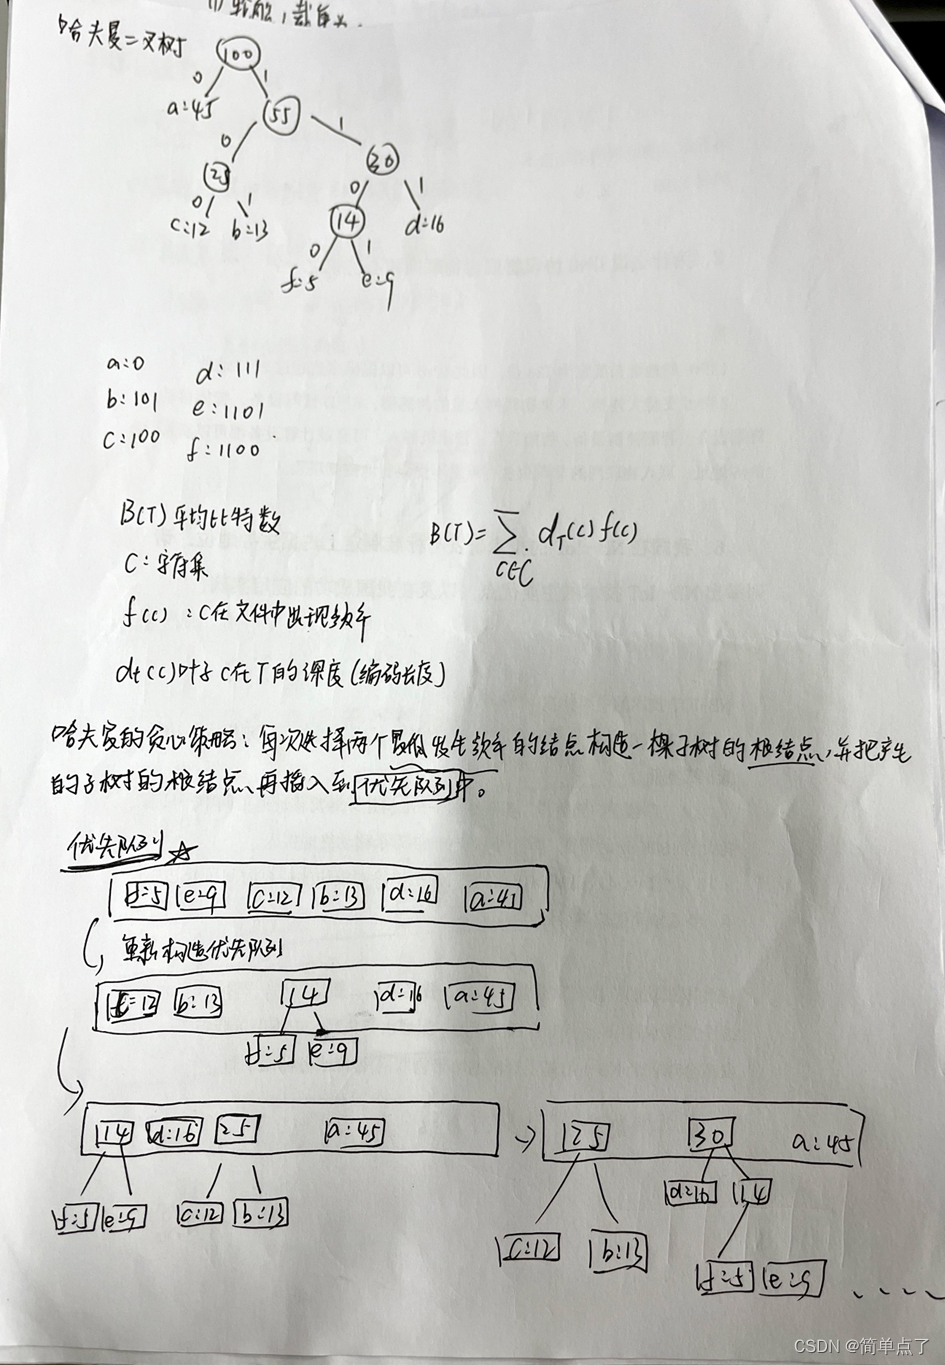 哈夫曼二叉树
100
0 1
a:45 55
0 1
25 30
0 1 0 1
c:12 b:13 14 d:16
0 1
f:5 e:9
a:0 d:111
b:101 e:1101
c:100 f:1100
B(T)平均比特数 B(T)=∑ d_T(c)f(c)
c∈C
C:字符集
f(c):C在文件中出现频率
dt(c)叶子c在T的深度(编码长度)
哈夫曼的贪心策略:每次选择两个最低发生频率的结点构造一棵子树的根结点,并把产生
的子树的根结点、再插入到优先队列中。
优先队列☆
f:5 e:9 c:12 b:13 d:16 a:45
重新构造优先队列
c:12 b:13 14 d:16 a:45
f:5 e:9
14 d:16 25 a:45 → 25 30 a:45
d:16 14
f:5 e:9 c:12 b:13
c:12 b:13
f:5 e:9 ....
CSDN @简单点了